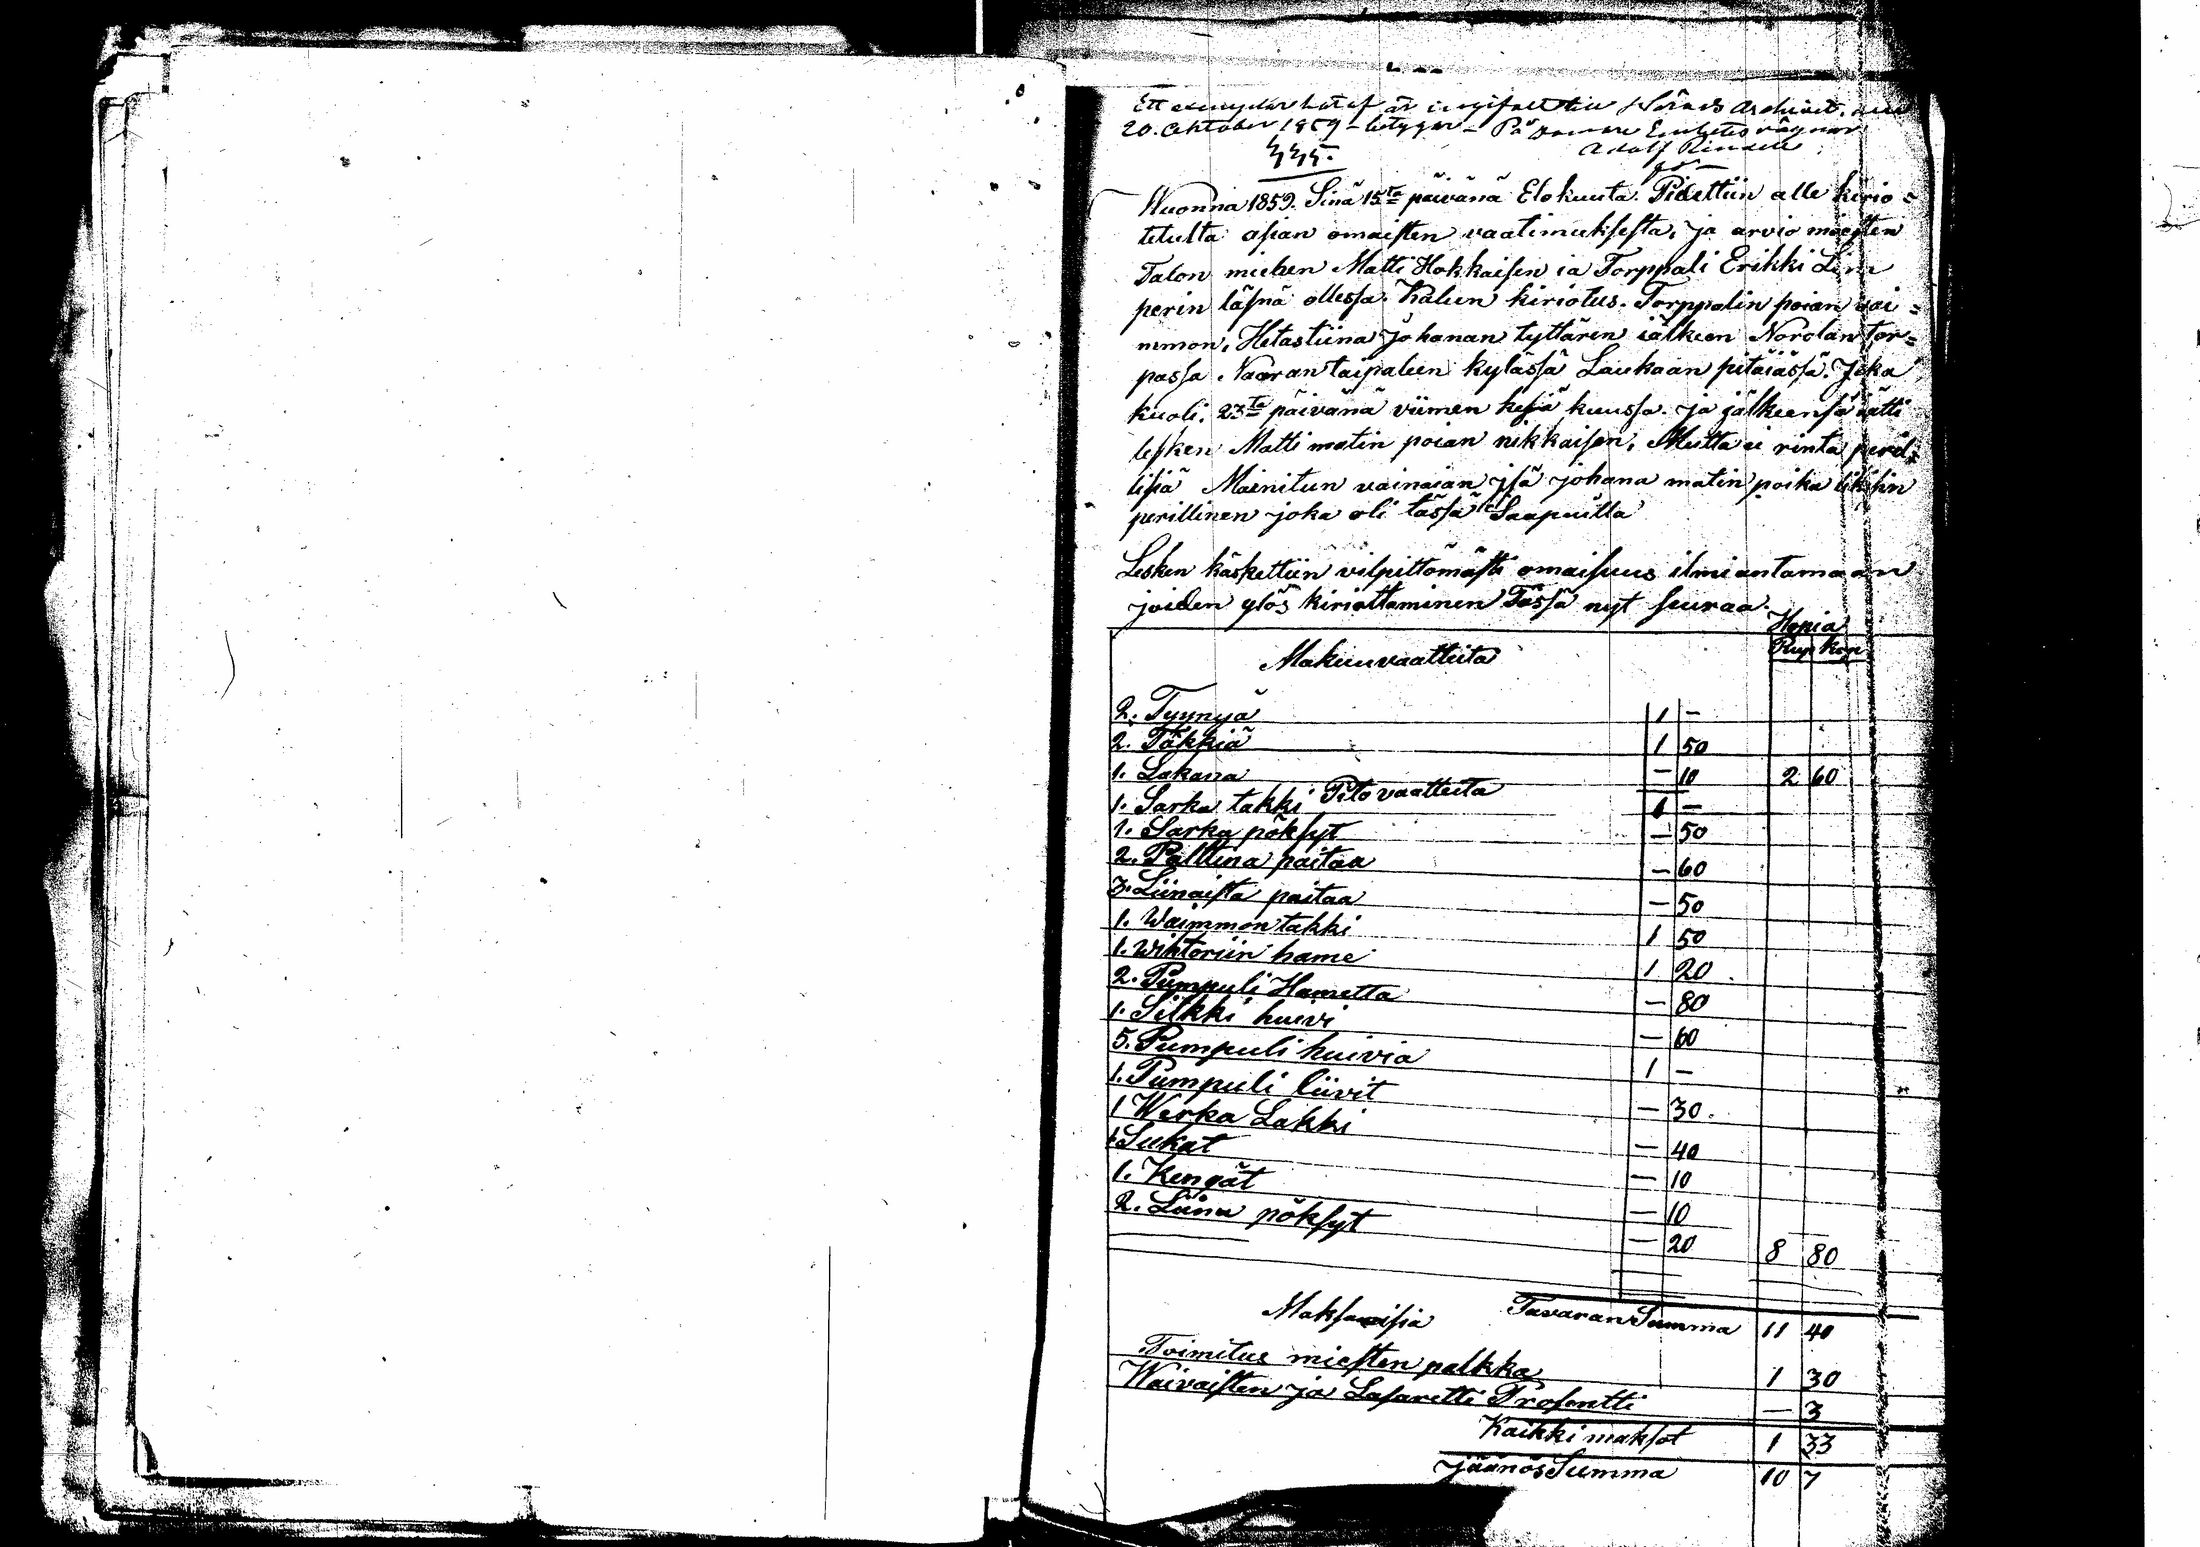 Ett exemplar häraf är ingifvit till Härads Archivet. den
20. October 1859 - betygar - På Domare Embetets vägnar
Adolf
335.
Wuonna 1859. Sinä 15ta päivänä Elokuuta. Pidettiin alle kirio=
tetulta asian omaisten vaatimuksesta, ja arvio miesten
Talon miehen Matti Hokkaisen ia Torppali Erikki Lim
perin läsnä ollessa. Kalun kiriotus. Torppalin poian vai=
mmon, Hetastiina Johanan tyttären iälkeen Norolan tor=
passa Naaran taipaleen kylässä Laukaan pitäiässä. Joka
kuoli. 23ta päivänä viimen kesä kuussa. ja jälkeensä iätti
lesken Matti matin poian nikkaisen, Mutta ei rinta peril,
lisiä Mainitun vainaian jsä johana matin poika likisin
perillinen joka oli tässä Saapuilla
Lesken käskettiin vilpittömästi omaisuus ilmiantamaan
joiden ylös kiriottaminen Tässä nyt seuraa.
Hopia
Makuuvaatteita Rup Kop
2. Tyynyä 1 —
2. Täkkiä 1 50
1. Lakana — 10 2 60
Pito vaatteita
1. Sarka takki 1 —
1. Sarka pöksyt — 50
2. Palttina paitaa — 60
3. Liinaista paitaa — 50
1. Waimmon takki 1 50
1. Wiktoriin hame 1 20
2. Pumpuli Hametta — 80
1. Silkki huivi — 60
5. Pumpuli huivia 1 —
1. Pumpuli liivit — 30.
1 Werka Lakki — 40
1 Sukat — 10
1. Kengät — 10
2. Liina pöksyt — 20 8 80
Tavaran Summa 11 40
Maksamisia
Toimitus miesten palkka 1 30
Waivaisten ja Lasaretti Prosentti — 3
Kaikki maksot 1 33
jäänös Summa 10 7